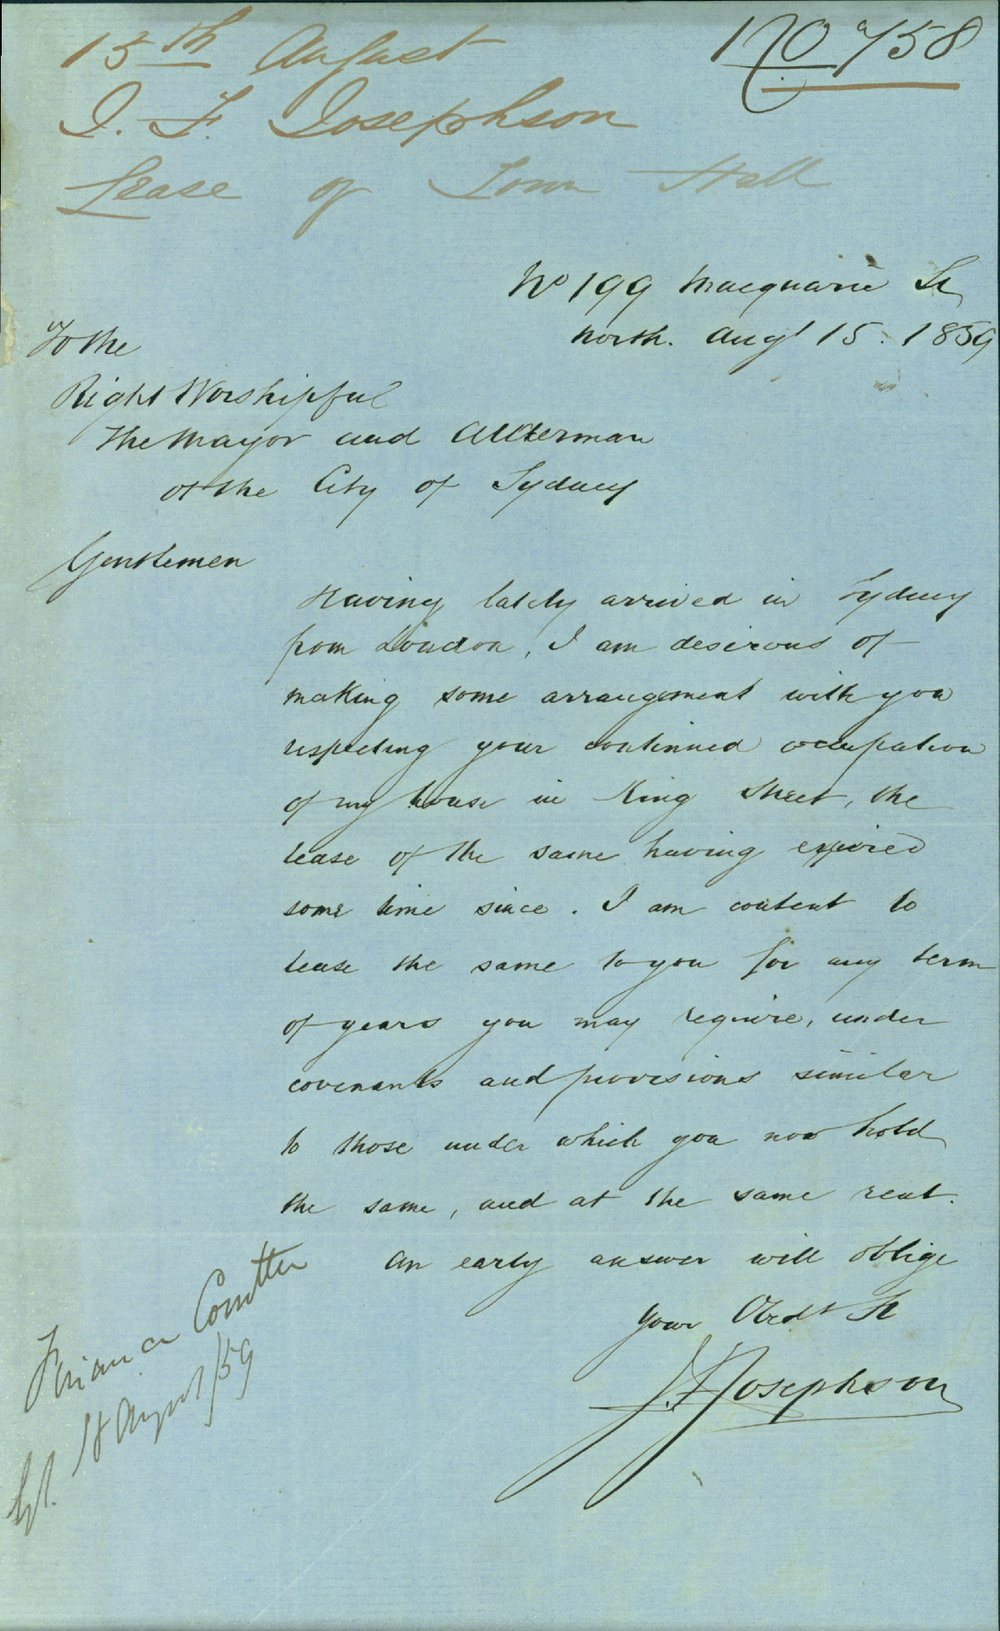 15th August 120/58
J. F. Josephson
Lease of Town Hall
No 199 Macquarie St
North. Augt 15. 1859
To the
Right Worshipful
The Mayor and Alderman
of the City of Sydney
Gentlemen
Having lately arrived in Sydney
from London, I am desirous of
making some arrangement with you
respecting your continued occupation
of my house in King Street, the
lease of the same having expired
some time since. I am content to
lease the same to you for any term
of years you may require, under
covenants and provisions similar
to those under which you now hold
the same, and at the same rent.
An early answer will oblige
Your Obedt St
J. F. Josephson
Finance Comttee
18 August /59